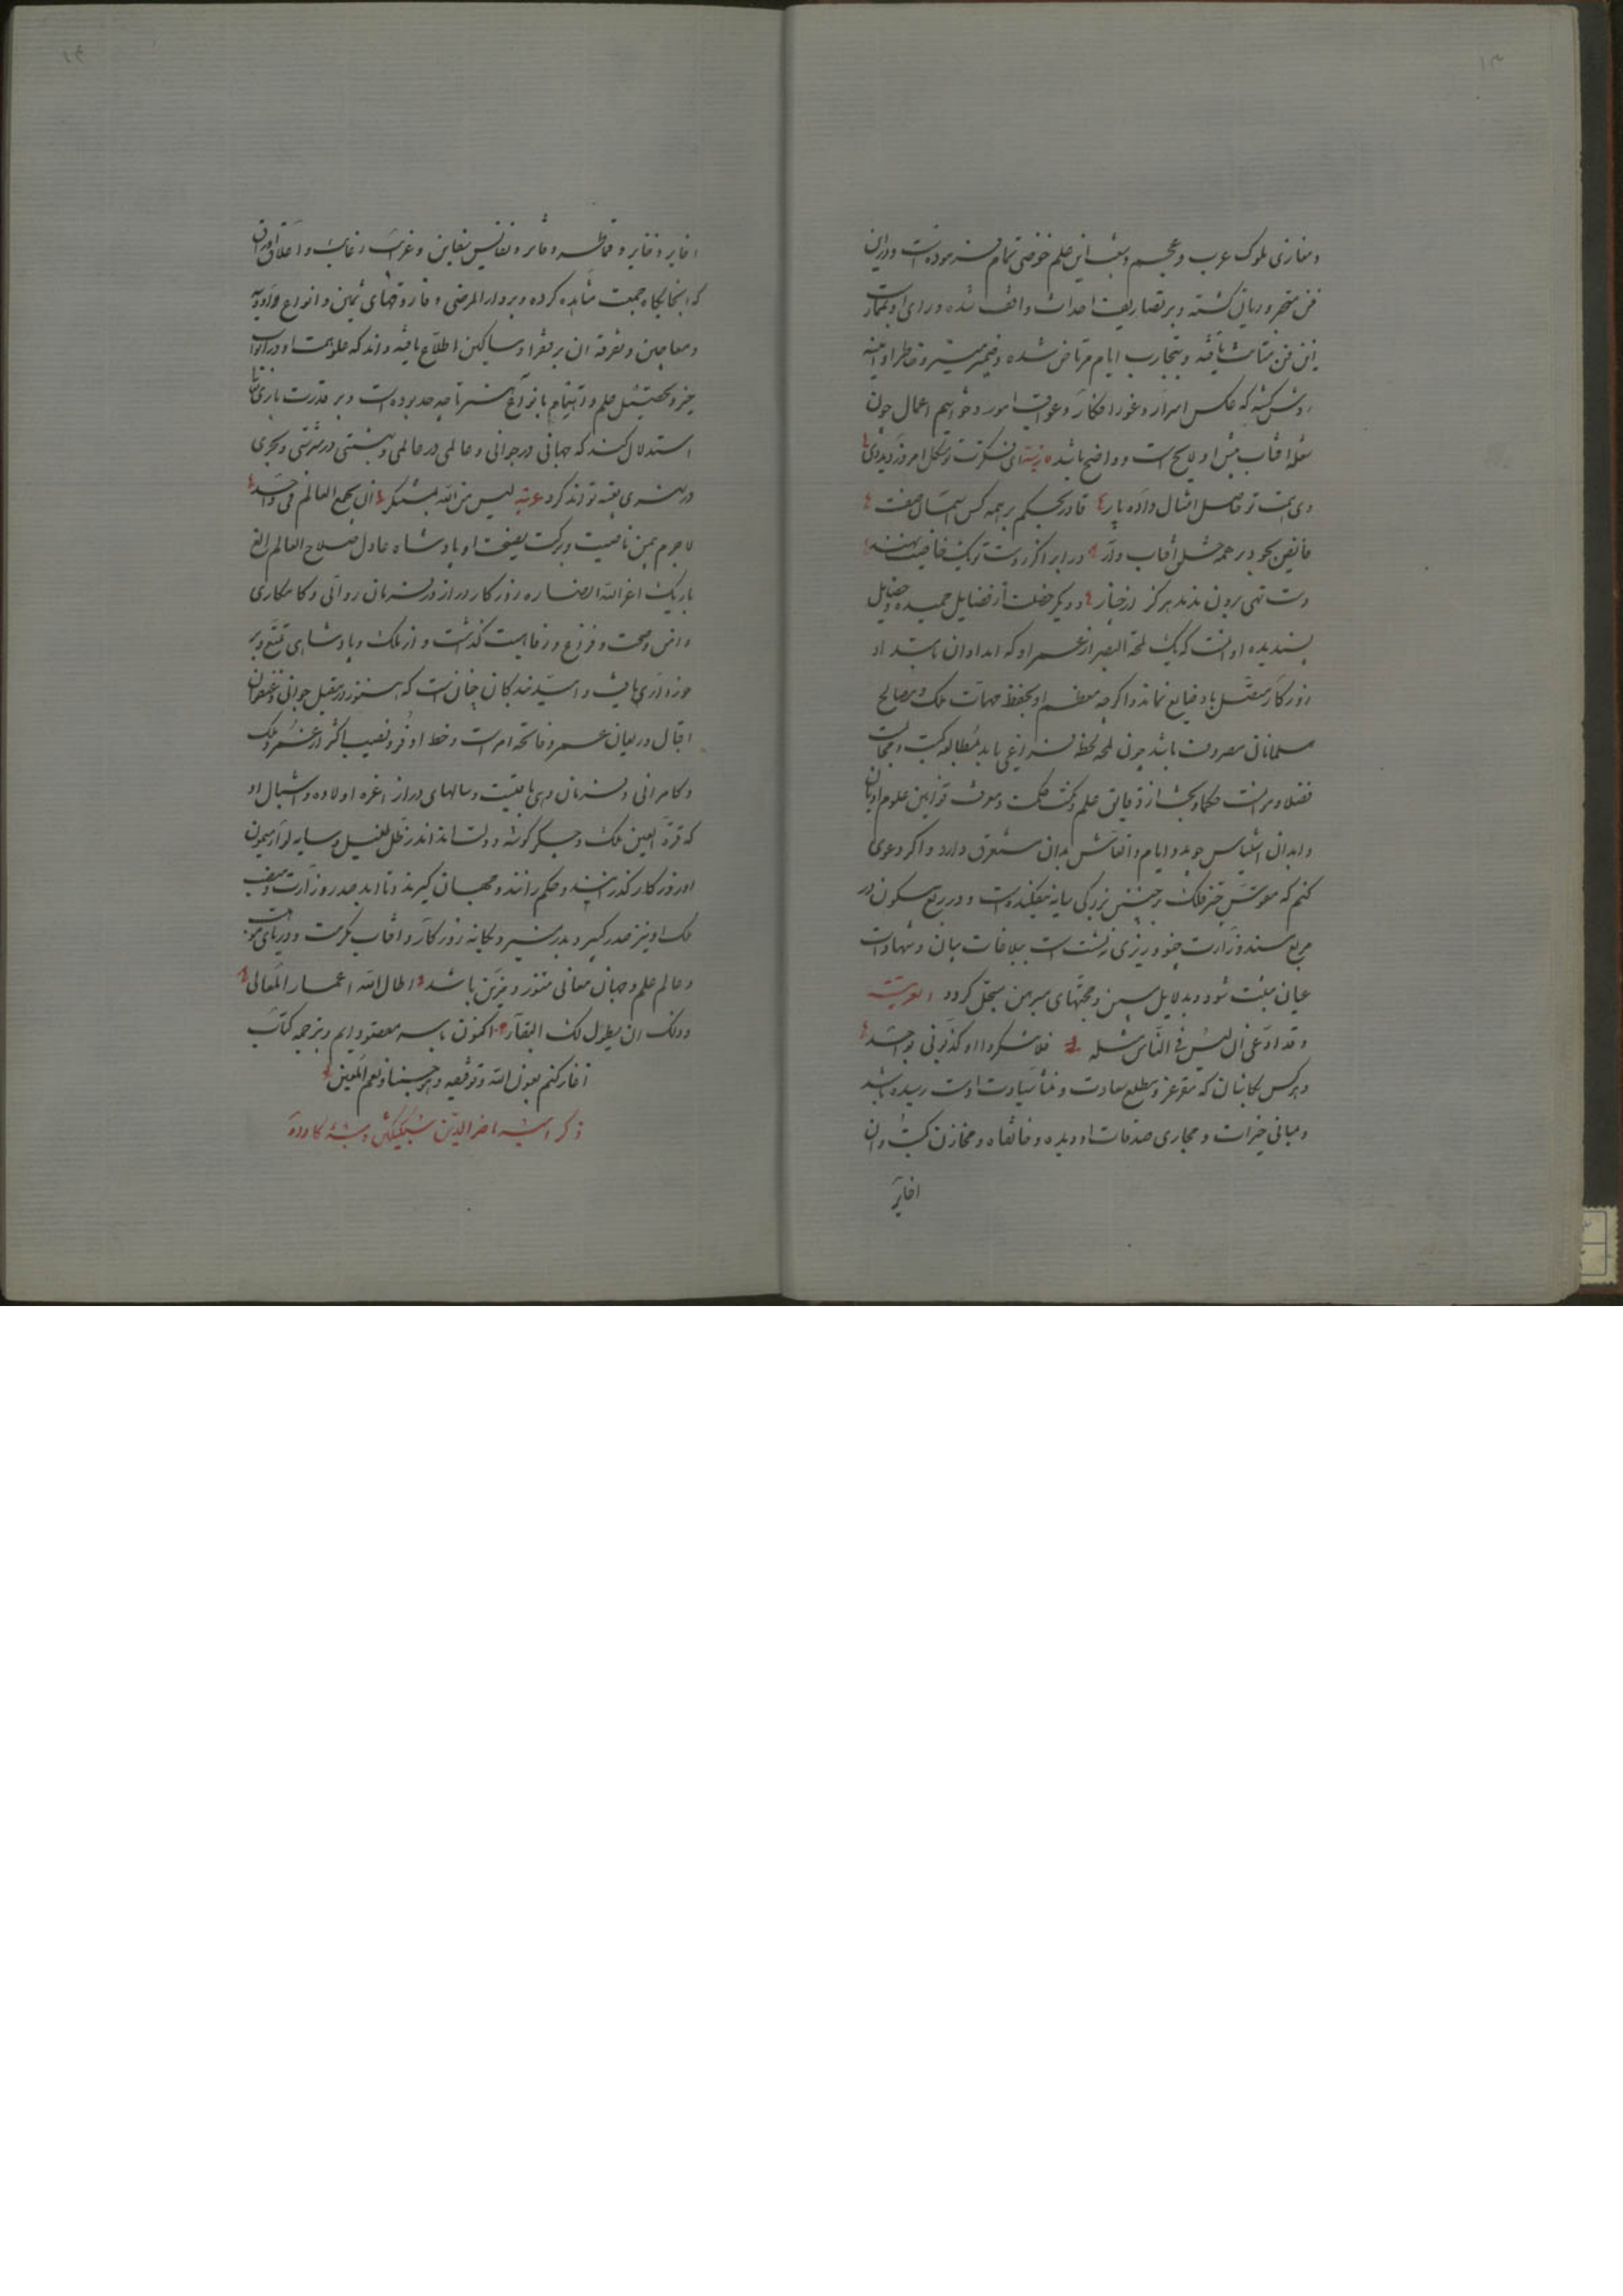 ومغازی ملوک عرب وعجم و این علم خوضی تمام فرموده است ودراین
فن متبحر و کشته و بر تصاریف احداث واقف شده ورای او بممارست
این فن یافته و بتجارب ایام مرتاض شده وضمیر منیر وخاطر او آینه
روشن کشته که عکس اسرار وغور افکار وعواقب امور وخواتیم اعمال چون
شعله افتاب پیش او لایح است وواضح باشد ای امروز دیده
وی همت تو حاصل امسال داده پار قادر بحکم بر همه کس صفت
فایض بجود بر همه مثل افتاب وار در ابر اگر ز دست تو یک خاصیت نهند
دست تهی برون ندمد هرگز از چنار ودیگر خصلت از فضایل حمیده وخصایل
پسندیده او انست که یک لمحة البصر از عمر او که امداد ان باد
روزکار معطل وضایع نماند واکرچه معظم او بحفظ مهمات ملک ومصالح
مسلمانان مصروف باشد چون لمحه لحظه فراغی یابد بمطالعه کتب ومجالست
فضلا وموانست حکما وبحث از دقایق علم ونکت حکمت ومعرفت قوانین علوم ادیان
وابدان جوید وایام واوقاتش بدان مستغرق دارد واکر دعوی
کنم که مقوس چتر فلک بر چنین بزرگی سایه نیفکنده است ودر ربع مسکون در
مربع مسند وزارت چنو وزیری ننشسته است ببلاغات بیان وشهادات
عیان مثبت شود وبدلایل مبین وحجتهای مبرهن مسجل کردد العربیة
وقد ادعی ان لیس فی الناس مثله فلا تنکروا او کذبونی بواحد
وهرکس بکاشان که مقر عز ومطلع سعادت ومنشأ سیادت اوست رسیده باشد
ومبانی خیرات ومجاری صدقات او دیده وخانقاه ومخازن کتب وان
اخایر
اخایر وذخایر و ودفاتر ونفایس وغرایب رغایب واعلاق اوراق
که انجایکاه جمعست مشاهده کرده وبر دار المرضی وفاروقهای ثمین وانواع ادویه
ومعاجین وتفرقه ان بر فقرا ومساکین اطلاع یافته داند که علو همت او در ابواب
خیر وتحصیل علم واهتمام بانواع هنر تا چه حد بوده است وبر قدرت باری تعالی
استدلال کند که جهانی در جوانی وعالمی در عالمی وبهشتی در سرشتی وبحری
در تعبیه تواند کرد عربیة لیس من الله بمستنکر ان یجمع العالم فی واحد
لاجرم بیمن ناصیت وبرکت نصیحت او پادشاه عادل صلاح العالم الغ
باربک اعز الله انصاره روزکار دراز در فرمان روائی وکامکاری
وامن وصحت وفراغ ورفاهیت کذاشت واز ملک وپادشاهی تمتع وبر
خورداری یافت وامید بندکان چنان است که هنوز در مقتبل جوانی وعنفوان
اقبال وریعان عمر وفاتحه امرست وحظ اوفر ونصیب اکثر از عمر وملک
وکامرانی وفرمان دهی باقیست وسالهای دراز اعزه اولاد واشبال او
که قرة العین ملک وجکر کوشه دولت اند اندر ظل ظلیل وسایه لوای میمون
او روزکار کذرانند وحکم رانند وجهان کیرند وتا ابد صدر وزارت وسقف
ملک او نیز صدر کبیر وبدر منیر ویکانه روزکار وافتاب مکرمت ودریای موهبت
وعالم علم وجهان معانی منور ومزین باشد اطال الله اعمار المعالی
وذلک ان یطول لک البقآء اکنون با سر مقصود ایم وبترجمه کتاب
آغاز کنم بعون الله وتوفیقه وهو حسبنا ونعم المعین
ذکر امیر ناصر الدین سبکتکین و